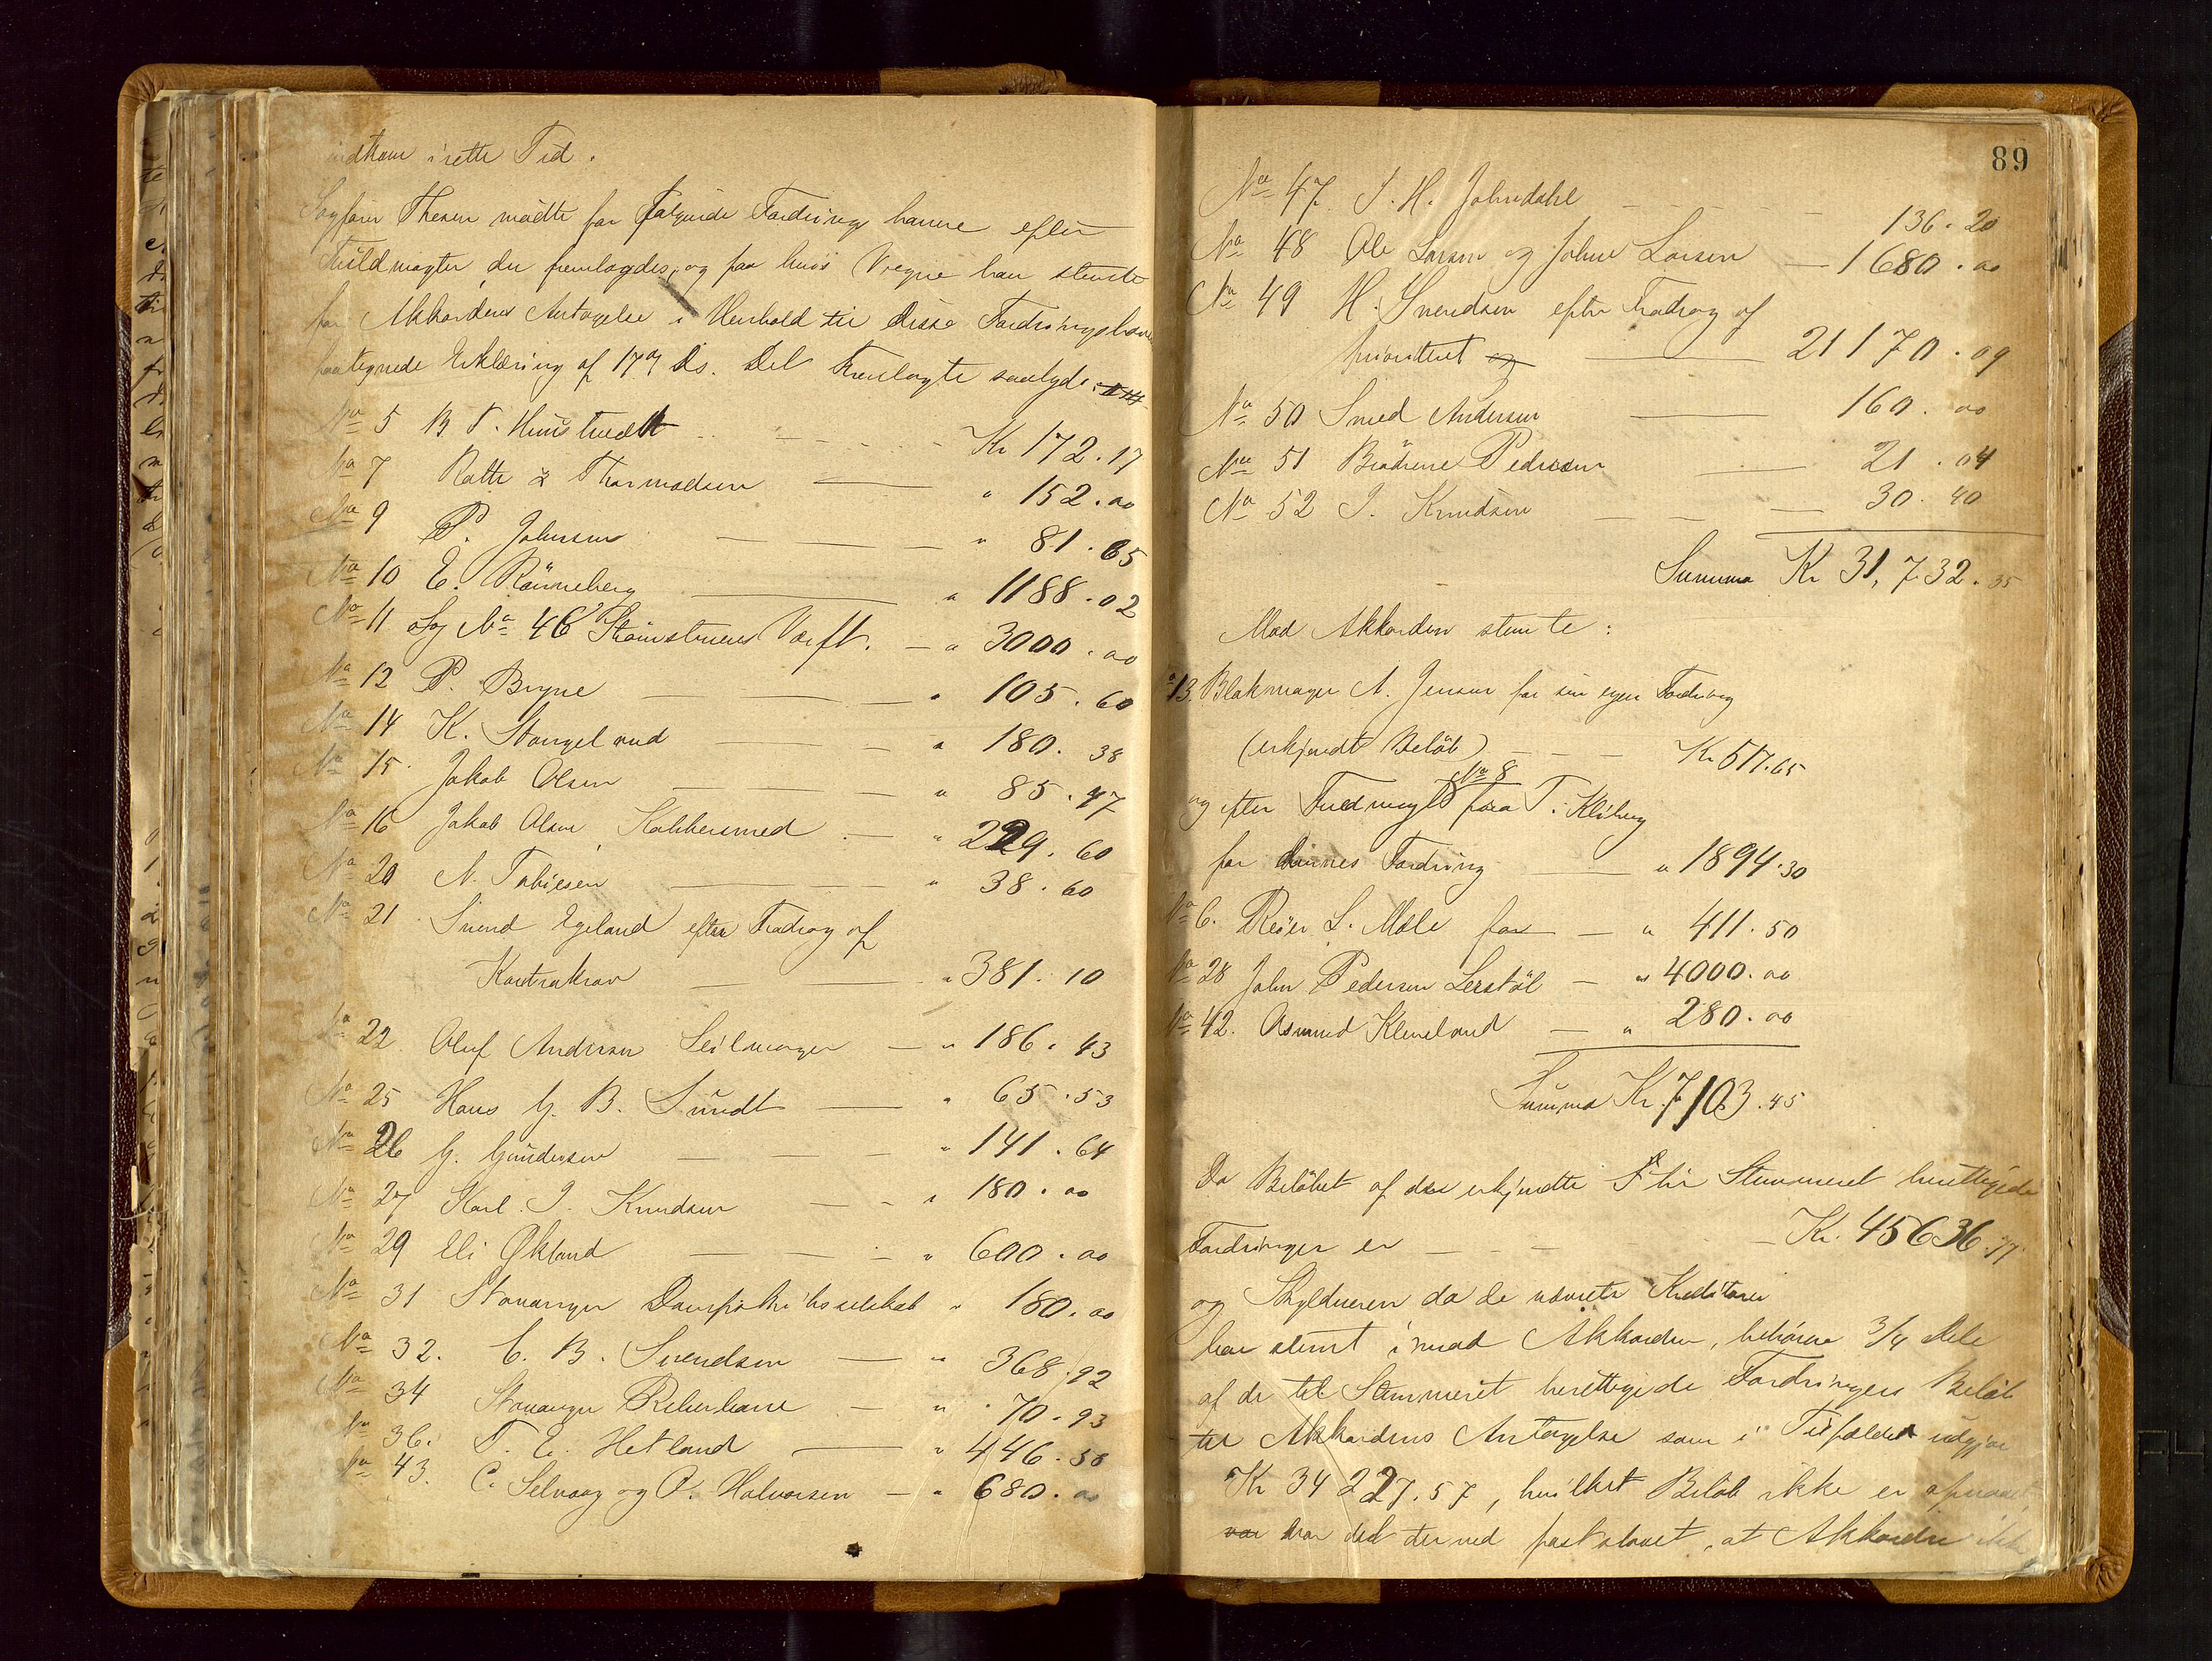 indkom i rette Tid.
Sagfører Thesen mödte for følgende Fordringshavere efter
Fuldmagter der fremlagdes, og paa hvis Vegne han stemte
for Akkordens Antagelse i Henhold til disse Fordringshavere
paategnede Erklæring af 17de ds. Det fremlagte saalyder:
No 5 B. T. Hunstvedt Kr 172.17
No 7 Rolle & Thormodsen " 152.00
No 9 P. Johnsen " 81.65
No 10 E. Rönneberg " 1188.02
No 11 og No 46 Strömstenens Værft. " 3000.00
No 12 P. Bryne " 105.60
No 14 K. Stangeland " 180.38
No 15 Jakob Olsen " 85.47
No 16 Jakob Olsen Kobbersmed " 229.60
No 20 N. Tobiesen " 38.60
No 21 Svend Egeland efter Fradrag af
Kontrakrav " 381.10
No 22 Oluf Andersen Seilmager " 186.43
No 25 Hans G. B. Sundt " 65.53
No 26 G. Gundersen " 141.64
No 27 Karl. I. Knudsen " 180.00
No 29 Eli Økland " 600.00
No 31 Stavanger Dampskibsselskab " 180.00
No 32. C. B. Svendsen " 368.92
No 34 Stavanger Reberbane " 70.93
No 36. T. E. Hetland " 446.58
No 43. C. Selvaag og O. Halvorsen " 680.00
89
No 47 I. H. Johndahl 136.20
No 48 Ole Larsen og Johne Larsen 1680.00
No 49 H. Svendsen efter Fradrag af
prioriteret 21170.09
No 50 Smed Andersen 160.00
No 51 Brödrene Pedersen 21.04
No 52 I. Knudsen 30.40
Summa Kr 31,732.35
Mod Akkorden stemte:
13. Blokmager A. Jensen for sin egen Fordring
(erkjendt Beløb) Kr 517.65
No 8
og efter Fuldmagt fra T. Kloberg
for dennes Fordring " 1894.30
No 6. Reier L. Mæle for " 411.50
No 28 John Pedersen Lerstöl " 4000.00
No 42. Asmund Kleveland " 280.00
Summa Kr. 7103.45
Da Belöbet af de erkjendte til Stemmeret berettigede
Fordringer er Kr. 45636.77
og Skyldneren da de nævnte Kreditorer
har stemt imod Akkorden, behöver 3/4 Dele
af de til Stemmeret berettigede Fordringers Belöb
til Akkordens Antagelse som i Tilfældet udgjør
Kr 34227.57, hvilket Belöb ikke er opnaaet,
var det dermed fastslaaet, at Akkorden ikke